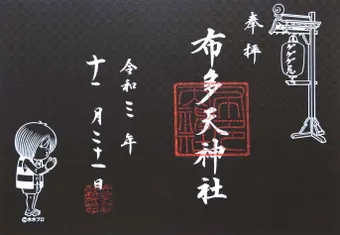 奉拝
布多天神社
令和三年
十一月二十一日
ゲゲゲ忌
©水木プロ